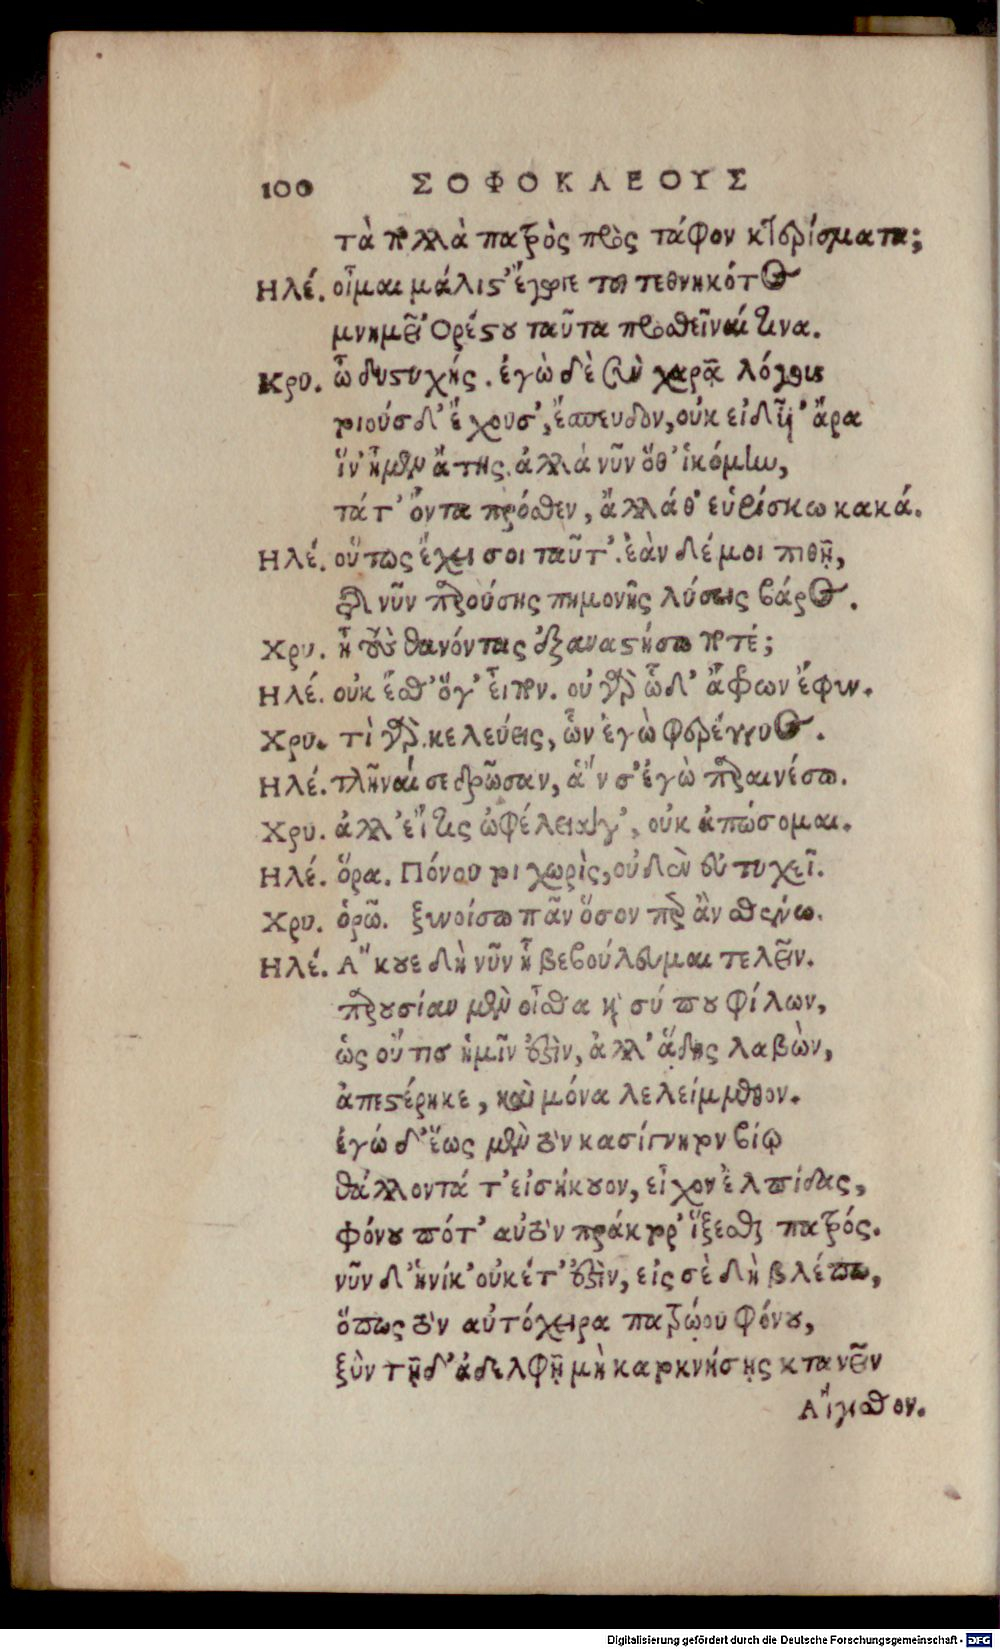 100 ΣΟΦΟΚΛΕΟΥΣ
τὰ πολλὰ πατρὸς πρὸς τάφον κτερίσματα;
Ηλέ. οἶμαι μάλιστ' ἔγωγε τοῦ τεθνηκότος
μνημεῖ' Ορέστου ταῦτα προσθεῖναί τινα.
Κρυ. ὦ δυστυχής. ἐγὼ δὲ σὺν χαρᾷ λόγους
τοιούσδ' ἔχουσ', ἔσπευδον, οὐκ εἰδυῖ' ἄρα
ἵν' ἦμεν ἄτης. ἀλλὰ νῦν ὅθ' ἱκόμην,
τάτ' ὄντα πρόσθεν, ἄλλά θ' εὑρίσκω κακά.
Ηλέ. οὕτως ἔχει σοι ταῦτ'. ἐὰν δέ μοι πιθῇ,
τῆς νῦν παρούσης πημονῆς λύσεις βάρος.
Χρυ. ἦ τοὺς θανόντας ἐξαναστήσω ποτέ;
Ηλέ. οὐκ ἔσθ' ὅγ' εἶπον. οὐ γὰρ ὧδ' ἄφρων ἔφυν.
Χρυ. τὶ γὰρ κελεύεις, ὧν ἐγὼ φερέγγυος.
Ηλέ. τλῆναί σε δρῶσαν, ἃν σ' ἐγὼ παραινέσω.
Χρυ. ἀλλ' εἴ τις ὠφέλειά γ', οὐκ ἀπώσομαι.
Ηλέ. ὅρα. Πόνου τοι χωρὶς, οὐδὲν εὐτυχεῖ.
Χρυ. ὁρῶ. ξυνοίσω πᾶν ὅσον περ ἂν σθένω.
Ηλέ. Α῎κουε δὴ νῦν ᾗ βεβούλευμαι τελεῖν.
παρουσίαν μὲν οἶσθα καὶ σύ που φίλων,
ὡς οὔτισ ἡμῖν ἐστὶν, ἀλλ' ᾅδης λαβὼν,
ἀπεστέρηκε, καὶ μόνα λελείμμεθον.
ἐγώ δ' ἕως μὲν τὸν κασίγνητον βίῳ
θάλλοντά τ' εἰσήκουον, εἶχον ἐλπίδας,
φόνου πότ' αὐτὸν πράκτορ' ἵξεσθαι πατρός.
νῦν δ' ἡνίκ' οὐκέτ' ἐστὶν, εἰς σὲ δὴ βλέπω,
ὅπως τὸν αὐτόχειρα πατρῴου φόνου,
ξὺν τῇδ' ἀδελφῇ μὴ κατοκνήσῃς κτανεῖν
Αἴγισθον.
Digitalisierung gefördert durch die Deutsche Forschungsgemeinschaft - DFG